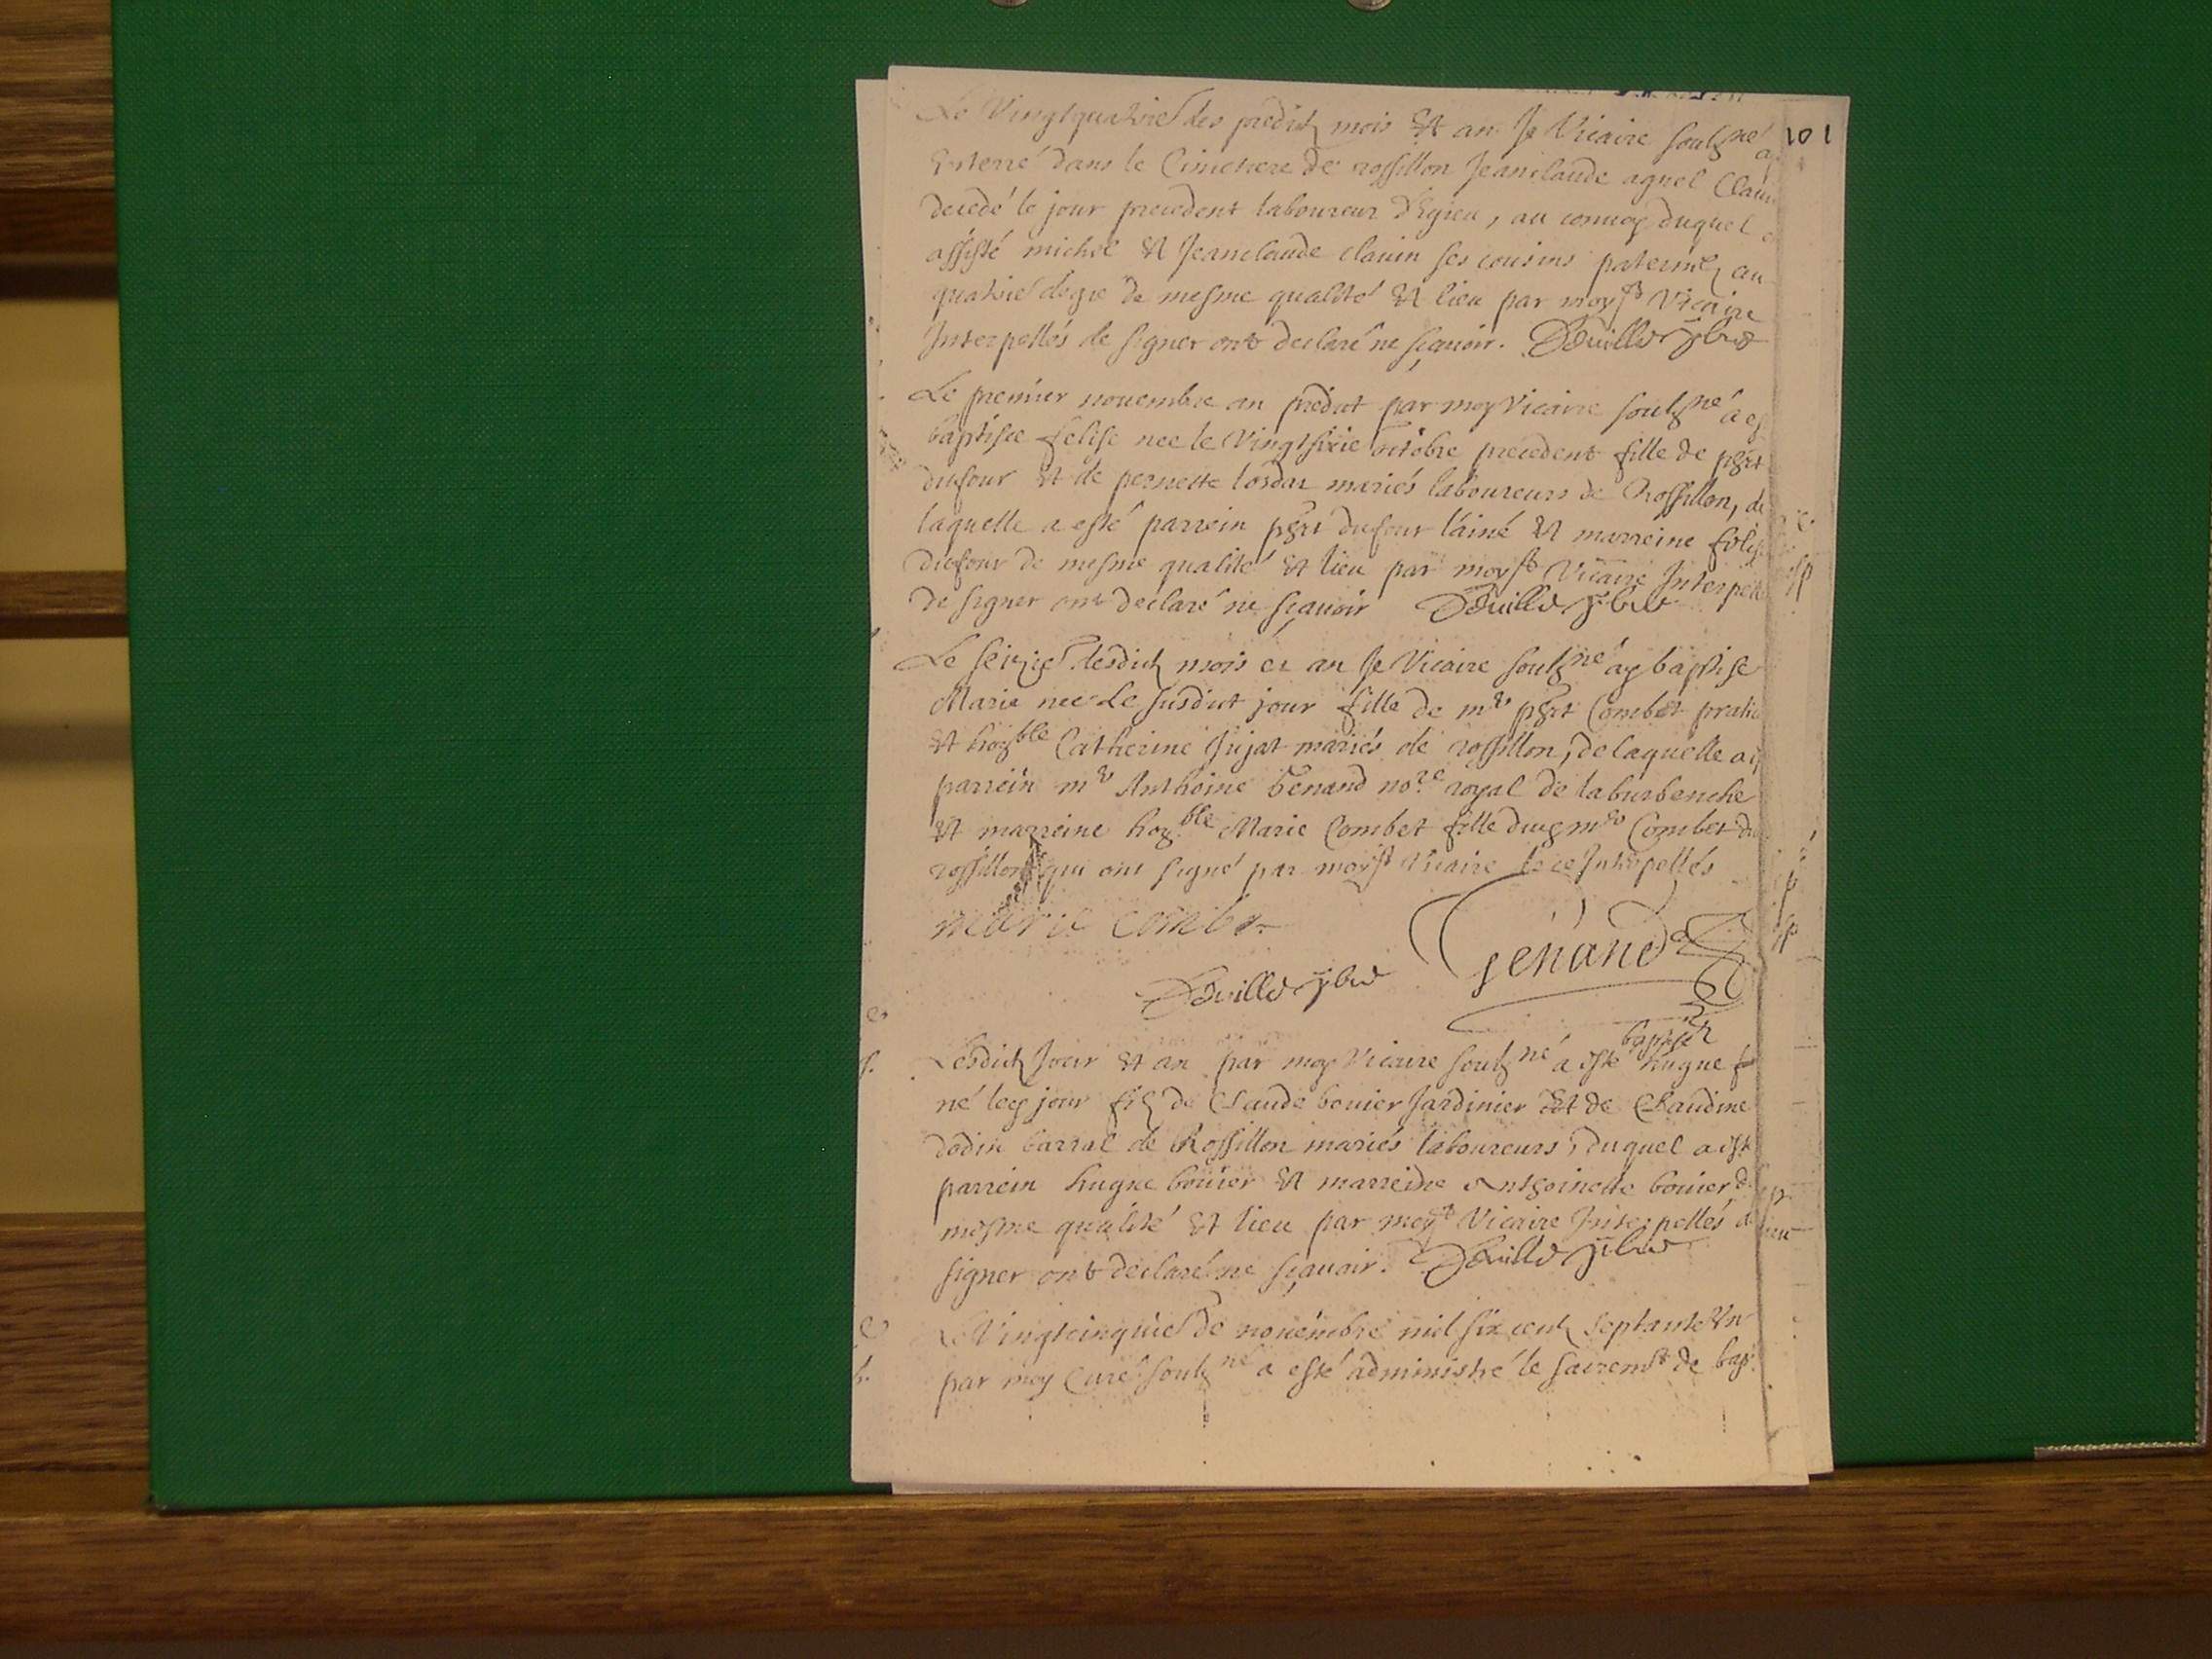 101
Le Vingtquatrie des predictz mois et an Je Vicaire soubzné ay
Enterré dans le Cimetiere de rossillon Jeanclaude aguel Claui
decedé le jour precedent laboureur d'Egieu, au conuoy duquel o
assisté michel et Jeanclaude clauin ses cousins paternelz au
quatrie degre de mesme qualité et lieu par moyst Vicaire
Interpellés de signer ont declaré ne sçauoir. Deuille pbre
Le premier nouembre an predict par moy Vicaire soubzné a es
baptisee felise nee le Vingtsixie octobre precedent fille de pbert
dufour et de pernette tordar mariés laboureurs de Rossillon, de
laquelle a esté parrein pbert dufour l'ainé et marreine felise
dufour de mesme qualité et lieu par moyst Vicaire Interpellé
de signer ont declaré ne sçauoir Deuille pbre
Le seizie desdictz mois et an Je Vicaire soubzné ay baptise
Marie nee Le susdict jour fille de mre pbert Combet pratic
et hoyble Catherine Jujat mariés de rossillon, de laquelle a e
parrein mre Anthoine Genand nore royal de laburbenche
et marreine hoyble Marie Combet fille dug mre Combet du
rossillon qui ont signé par moyst Vicaire de ce Interpellés
marie Combet
Genand
Deuille pbre
baptisé
Lesdictz Jour et an par moy Vicaire soubzné a esté hugue f
né led jour filz de Claude bouier Jardinier et de Claudine
dodin barral de Rossillon mariés laboureurs, duquel a esté
parrein hugue bouier et marreine Anthoinette bouier de
mesme qualité et lieu par moyst Vicaire Interpellés de
signer ont declaré ne sçauoir. Deuille pbre
Le Vingtcinquie de nouembre mil six centz septante Vn
par moy Curé soubzné a esté administré le sacremt de bap